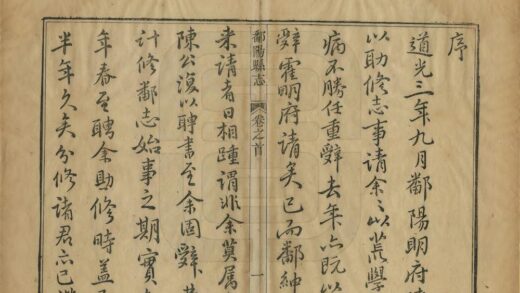 序
道光三年九月鄱陽明府
以助修志事請余之以荒學
病不勝任重辭去年亦既以
辭霍明府請矣已而鄱紳
鄱陽縣志 卷之首 一
来請者日相踵謂非余莫属
陳公復以聘書至余固辭
計修鄱志始事之期實
年春至聘余助修時蓋
半年久矣分修諸君亦已